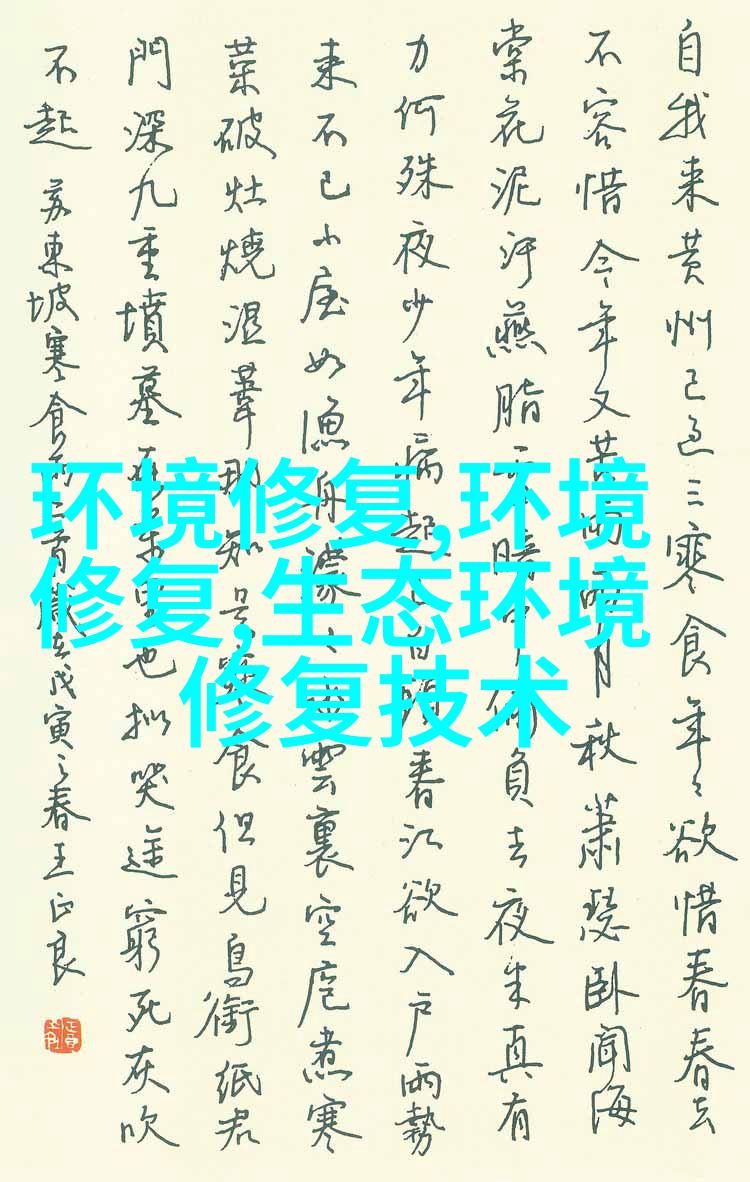 自我来黄州已过三寒食年々欲惜春春去
不容惜今年又苦雨两月秋萧瑟卧闻海
棠花泥汙燕脂雪暗中偷負去夜半真有
力何殊夜少年病起已白頭春江欲入户雨勢
来不已小屋如漁舟濛々水雲裏空庖煮寒
菜破灶燒濕葦那知是寒食但見烏銜紙君
門深九重墳墓在万里也拟哭途窮死灰吹
不起 苏東坡寒食雨二首 戊寅之春王正良
环境修复,环境
修复,生态环境
修复技术